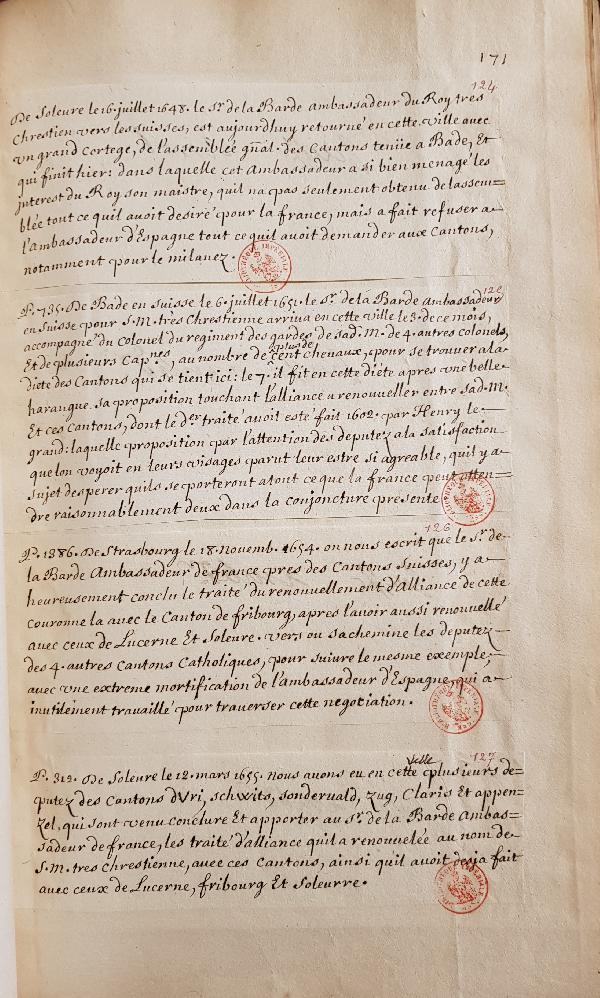 171
124
De Soleure le 16. juillet 1648. le Sr. de la Barde ambassadeur du Roy tres
Chrestien vers les suisses, est aujourdhuy retourné en cette ville avec
vn grand Cortege, de l'assemblée gñal. des Cantons tenüe a Bade, Et
qui finit hier: dans laquelle cet Ambassadeur a si bien menagé les
interest du Roy son maistre, quil na pas seulement obtenu de lassem=
blée tout ce quil avoit desiré pour la france, mais a fait refuser a
l'ambassadeur d'Espagne tout ce quil avoit demander aux Cantons,
notamment pour le milanez.
125
P. 735. De Bade en suisse le 6. juillet 1651. le Sr. de la Barde ambassadeur
en suisse pour S. M. très Chrestienne arriva en cette ville le 3. de ce mois,
accompagné du Colonel du regiment des gardes de sad. M. de 4. autres colonels,
plus de
Et de plusieurs Capnes, au nombre de cent chevaux, pour se trouver a la
diete des Cantons qui se tient ici: le 7. il fit en cette diete apres vne belle
harangue sa proposition touchant l'alliance a renouveller entre sad. M.
Et ces Cantons, dont le der traité avoit esté fait 1602. par Henry le
grand: laquelle proposition par l'attention des deputez a la satisfaction
que lon voyoit en leurs visages parut leur estre si agreable, quil y a
sujet desperer quils se porteront a tout ce que la france peut atten=
dre raisonnablement deux dans la conjoncture presente
126
P. 1386. De Strasbourg le 18. Novemb. 1654. on nous escrit que le Sr. de
la Barde Ambassadeur de france pres des Cantons Suisses, y a
heureusement conclu le traité du renouvellement d'Alliance de cette
couronne la avec le Canton de fribourg, apres l'avoir aussi renouvellé
avec ceux de Lucerne Et Soleure. vers ou sachemine les deputez
des 4. autres Cantons Catholiques, pour suivre le mesme exemple,
avec vne extreme mortification de l'ambassadeur d'Espagne, qui a
inutilement travaillé pour traverser cette negotiation.
127
ville
P. 312. De Soleure le 12. mars 1655. Nous avons eu en cette plusieurs de=
putez des Cantons d'Vri, schwits, sondervald, Zug, Claris Et appen=
zel, qui sont venu conclure Et apporter au Sr. de la Barde Ambas=
sadeur de france, les traité d'alliance quil a renouvelée au nom de
S. M. tres Chrestienne, avec ces Cantons, ainsi quil avoit desja fait
avec ceux de Lucerne, fribourg Et Soleurre.